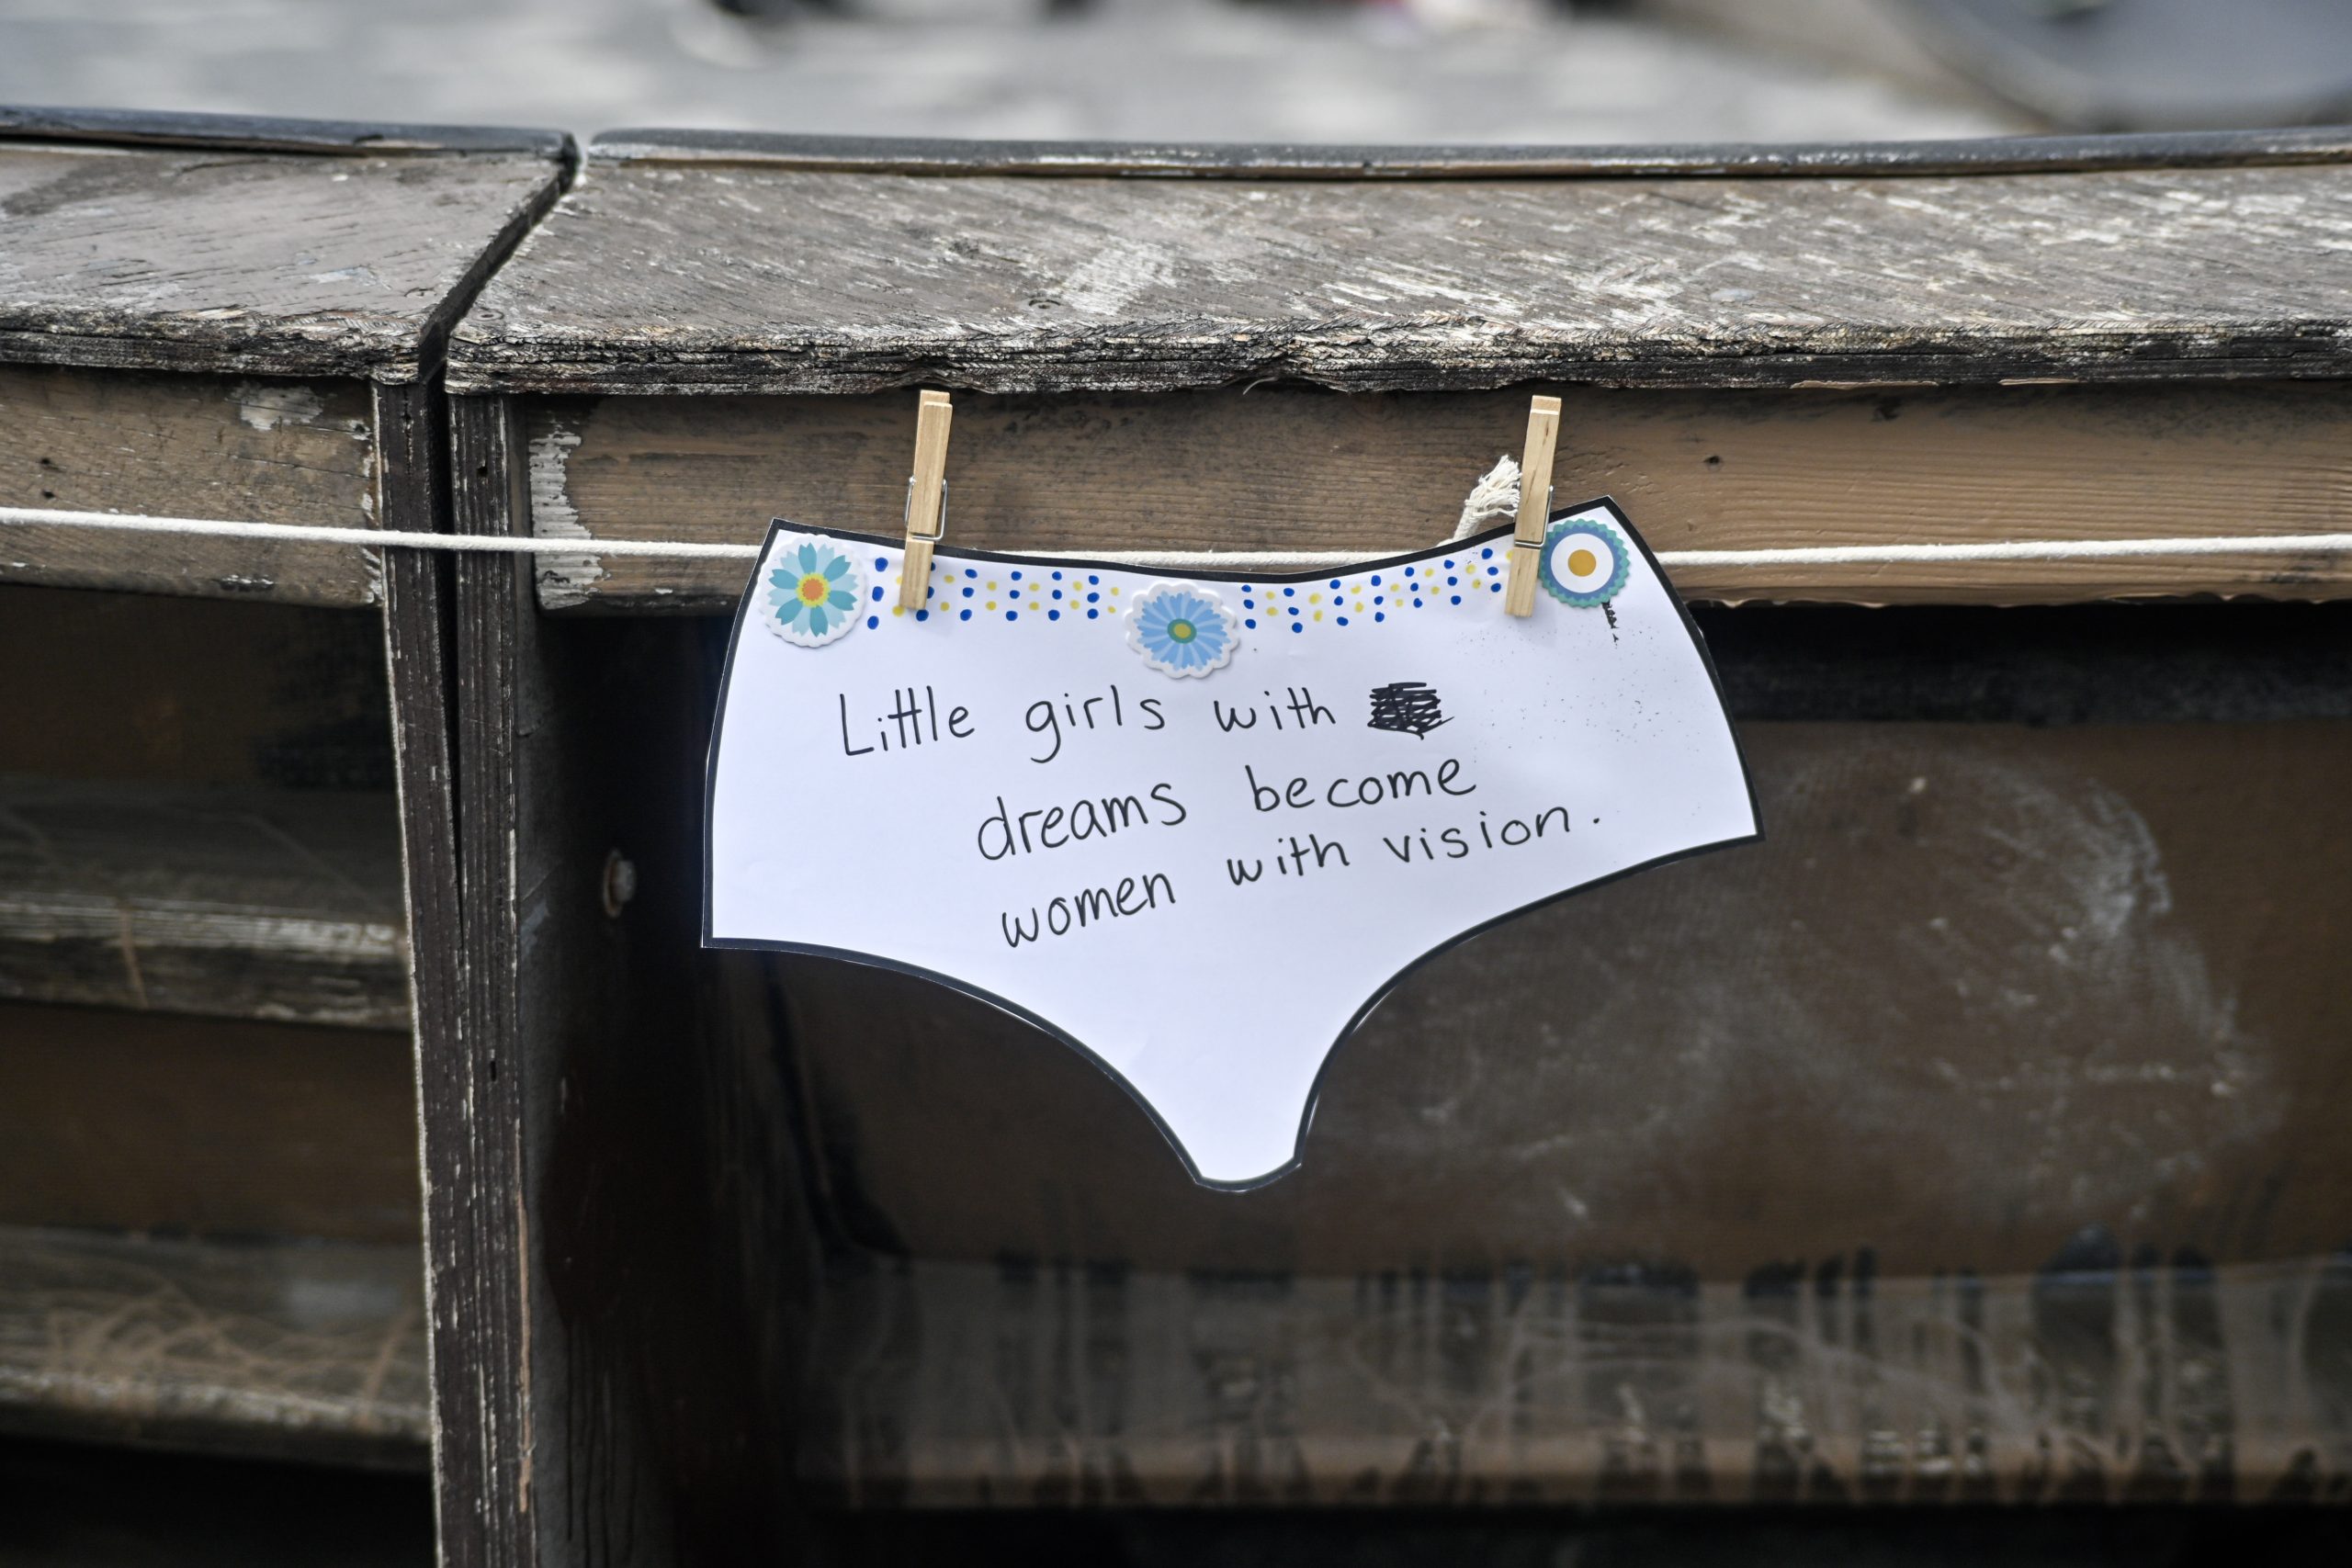 Little girls with
dreams become
women with vision.